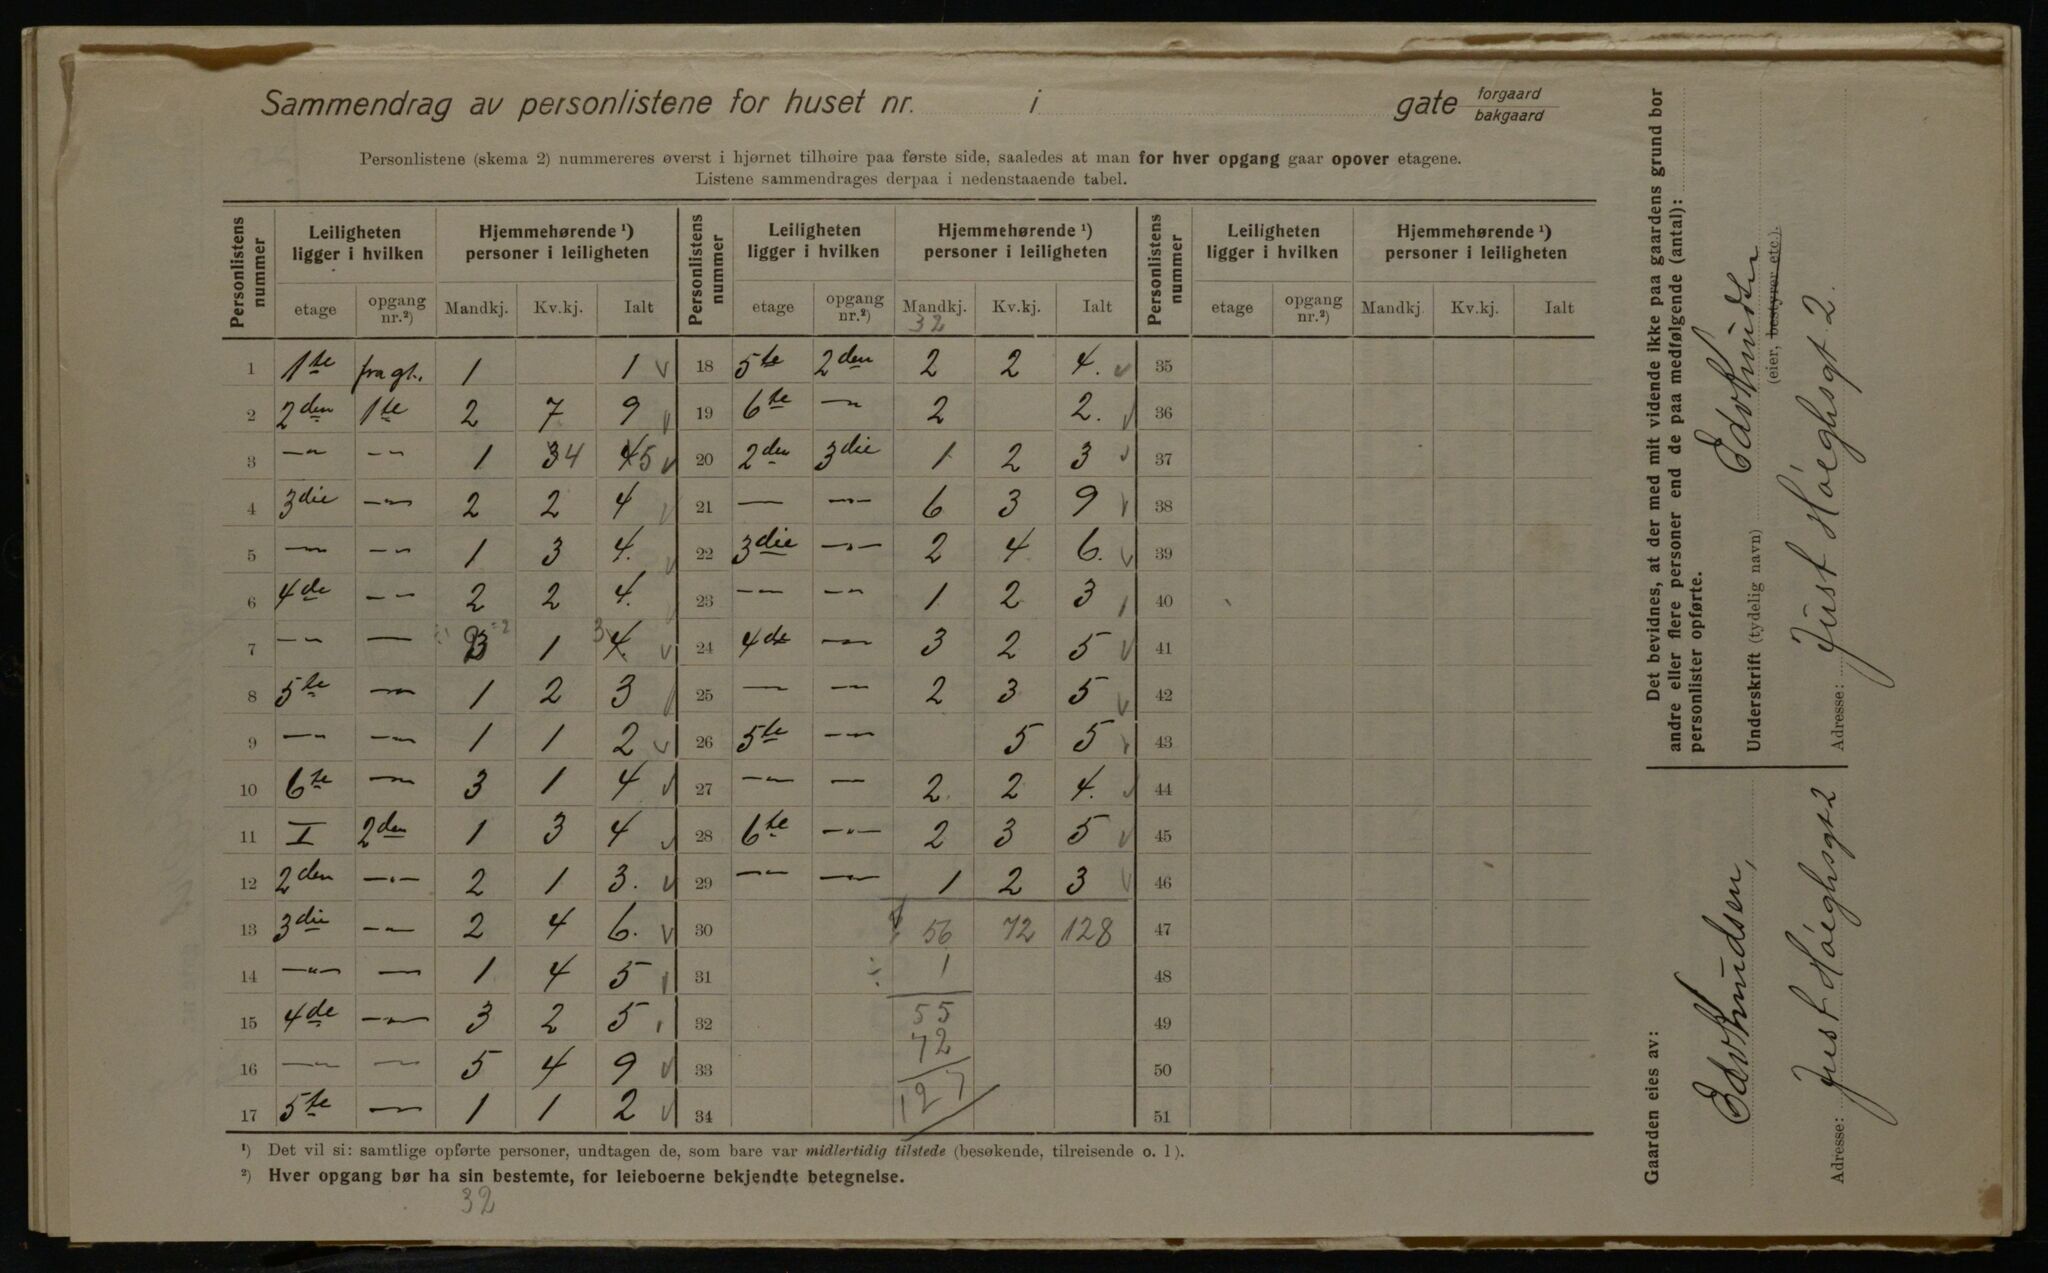 Sammendrag av personlistene for huset nr. i gate forgaard
bakgaard
Personlistene (skema 2) nummereres øverst i hjørnet tilhøire paa første side, saaledes at man for hver opgang gaar opover etagene.
Listene sammendrages derpaa i nedenstaaende tabel.
Personlistens nummer | Leiligheten ligger i hvilken | Hjemmehørende ¹) personer i leiligheten | Personlistens nummer | Leiligheten ligger i hvilken | Hjemmehørende ¹) personer i leiligheten | Personlistens nummer | Leiligheten ligger i hvilken | Hjemmehørende ¹) personer i leiligheten
etage | opgang nr.²) | Mandkj. | Kv.kj. | Ialt | etage | opgang nr.²) | Mandkj. | Kv.kj. | Ialt | etage | opgang nr.²) | Mandkj. | Kv.kj. | Ialt
32
1 1te 1 1 18 5te 2den 2 2 4. 35
2 2den 1te 2 7 9 19 6te —"— 2 2. 36
3 —"— —"— 1 34 45 20 2den 3die 1 2 3 37
4 3die —"— 2 2 4 21 — —"— 6 3 9 38
5 —"— —"— 1 3 4. 22 3die —"— 2 4 6. 39
6 4de —"— 2 2 4. 23 —"— —"— 1 2 3 40
7 —"— — 3 2 1 3 4. 24 4de —"— 3 2 5 41
8 5te —"— 1 2 3 25 —"— —"— 2 3 5 42
9 —"— —"— 1 1 2 26 5te —"— 5 5 43
10 6te —"— 3 1 4 27 —"— — 2 2 4. 44
11 I 2den 1 3 4 28 6te —"— 2 3 5 45
12 2den —"— 2 1 3. 29 —"— —"— 1 2 3 46
13 3die —"— 2 4 6. 30 56 72 128 47
14 —"— — 1 4 5 31 ÷ 1 48
15 4de —"— 3 2 5 32 55 49
16 —"— —"— 5 4 9 33 72 50
17 5te —"— 1 1 2 34 127 51
¹) Det vil si: samtlige opførte personer, undtagen de, som bare var midlertidig tilstede (besøkende, tilreisende o. l).
²) Hver opgang bør ha sin bestemte, for leieboerne bekjendte betegnelse.
32
Det bevidnes, at der med mit vidende ikke paa gaardens grund bor
andre eller flere personer end de paa medfølgende (antal):
personlister opførte.
Underskrift (tydelig navn) Edv Knudsen
(eier, bestyrer etc.).
Adresse: Just Høeghsgt 2.
Gaarden eies av:
Edv Knudsen,
Adresse: Just Høeghsgt 2